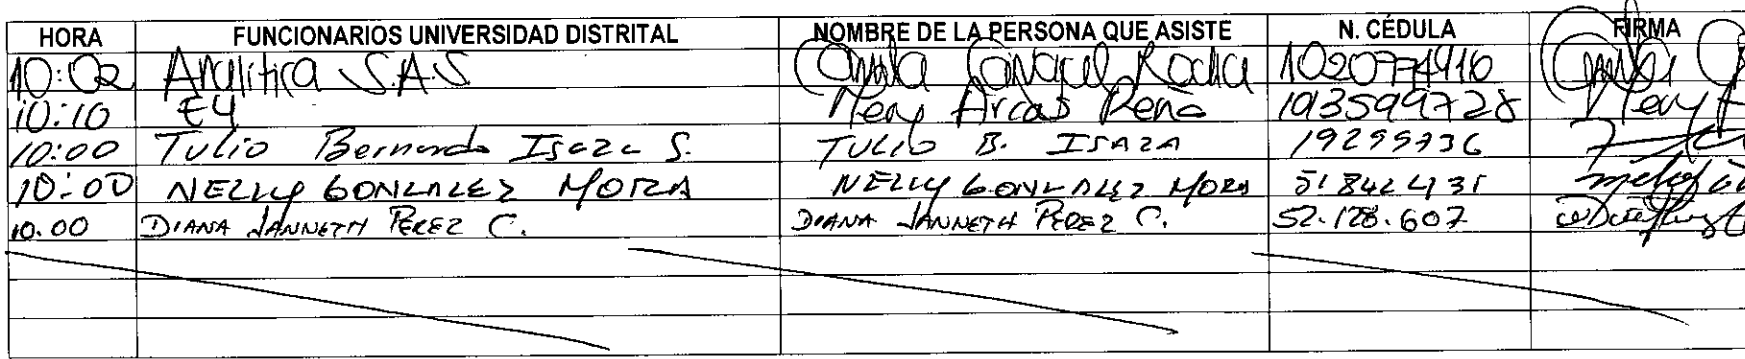 HORA FUNCIONARIOS UNIVERSIDAD DISTRITAL NOMBRE DE LA PERSONA QUE ASISTE N. CÉDULA FIRMA
10:02 Analitica S.A.S Rocha 1020774416
10:10 EY Arcas Peña 193599728
10:00 Tulio Bernardo Isaza S. TULIO B. ISAZA 19255736
10:00 NELLY GONZALEZ MORA NELLY GONZALEZ MORA 51842431
10.00 DIANA JANNETH PEREZ C. DIANA JANNETH PEREZ C. 52.128.607